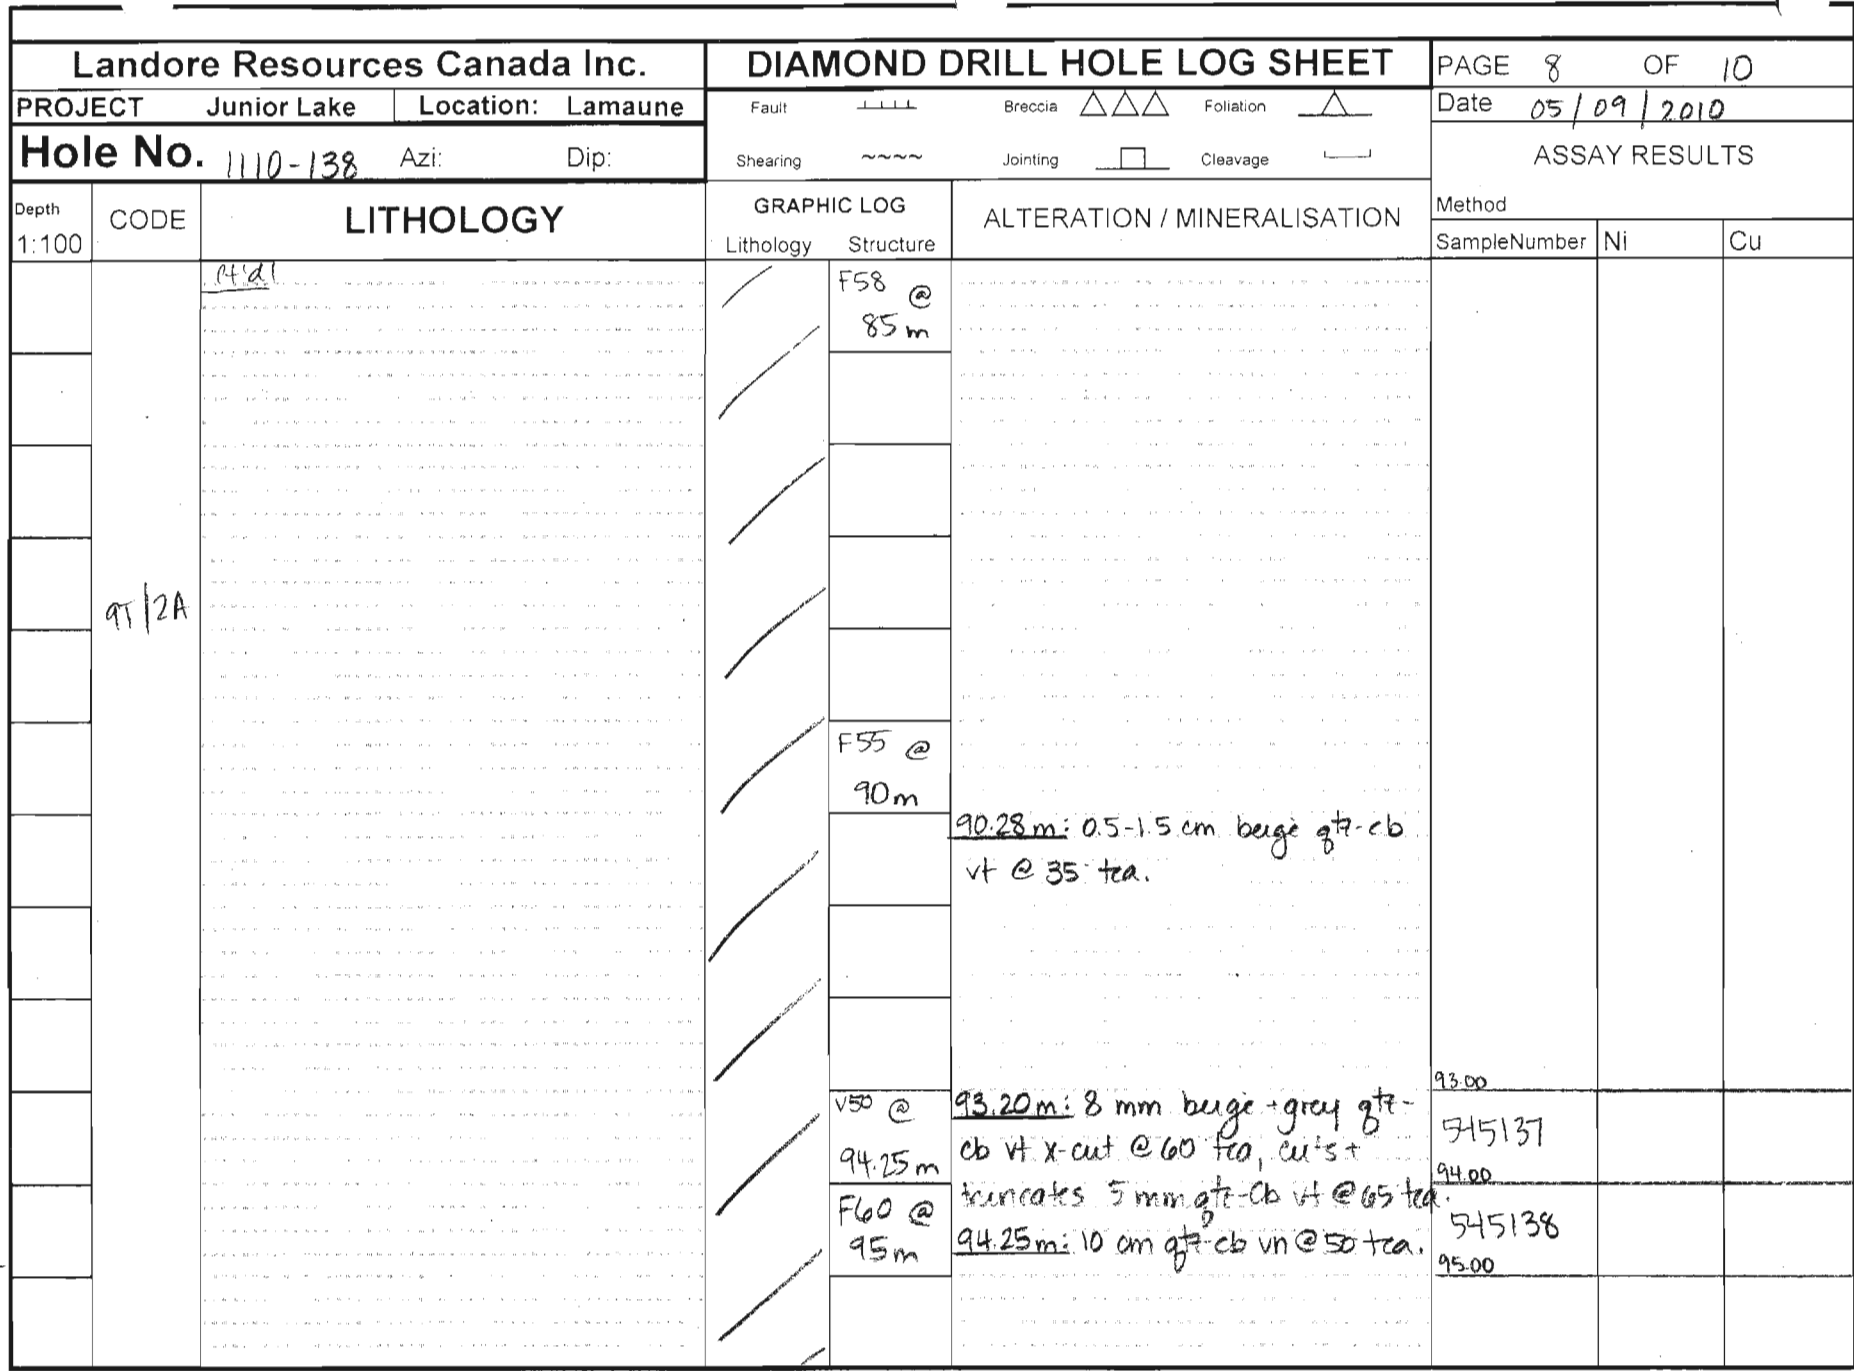 Landore Resources Canada Inc.
DIAMOND DRILL HOLE LOG SHEET
PAGE 8 OF 10
PROJECT Junior Lake Location: Lamaune
Fault Breccia Foliation
Date 05/09/2010
Hole No. 1110-138 Azi: Dip:
Shearing Jointing Cleavage
ASSAY RESULTS
Depth
1:100
CODE
LITHOLOGY
GRAPHIC LOG
Lithology Structure
ALTERATION / MINERALISATION
Method
SampleNumber Ni Cu
F58 @
85m
9T/2A
F55 @
90m
90.28m: 0.5-1.5 cm beige qtz-cb
vt @ 35 tca.
93.00
V50 @
94.25m
93.20m: 8 mm beige + grey qtz-
cb vt x-cut @ 60 tca, cuts +
truncates 5 mm qtz-cb vt @ 65 tca.
545137
94.00
F60 @
95m
94.25m: 10 cm qtz-cb vn @ 50 tca.
545138
95.00